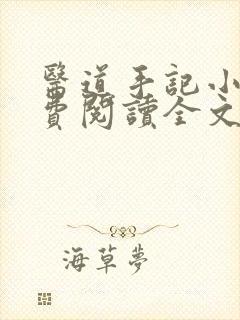 醫道手記小
費閱讀全文
海草夢